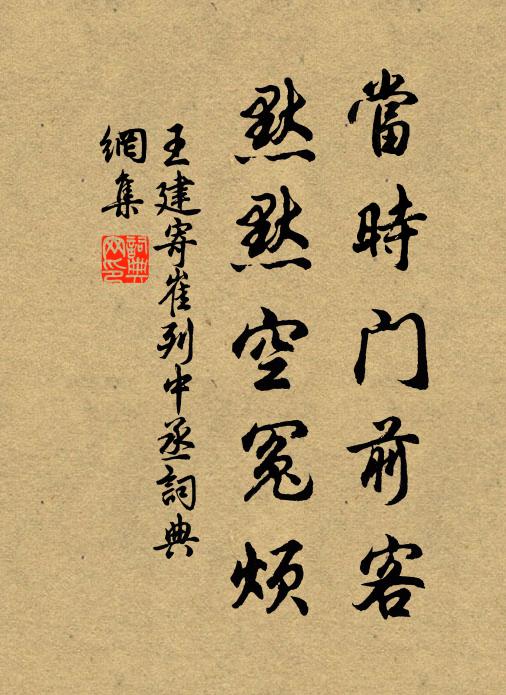 當時門前客
默默空冤煩
王建寄崔列中丞詞典
網集
詞典
网印